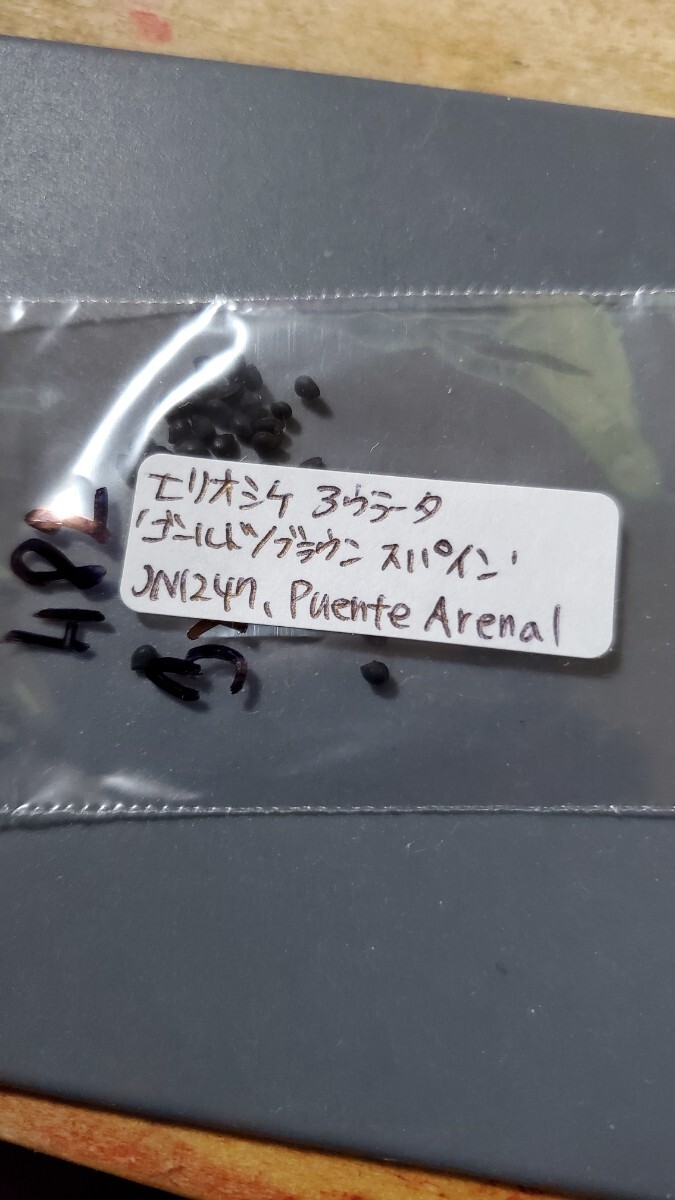 エリオシケ ヨウラータ
'ゴールド/ブラウン スパイン'
JN1247, Puente Arenal
482